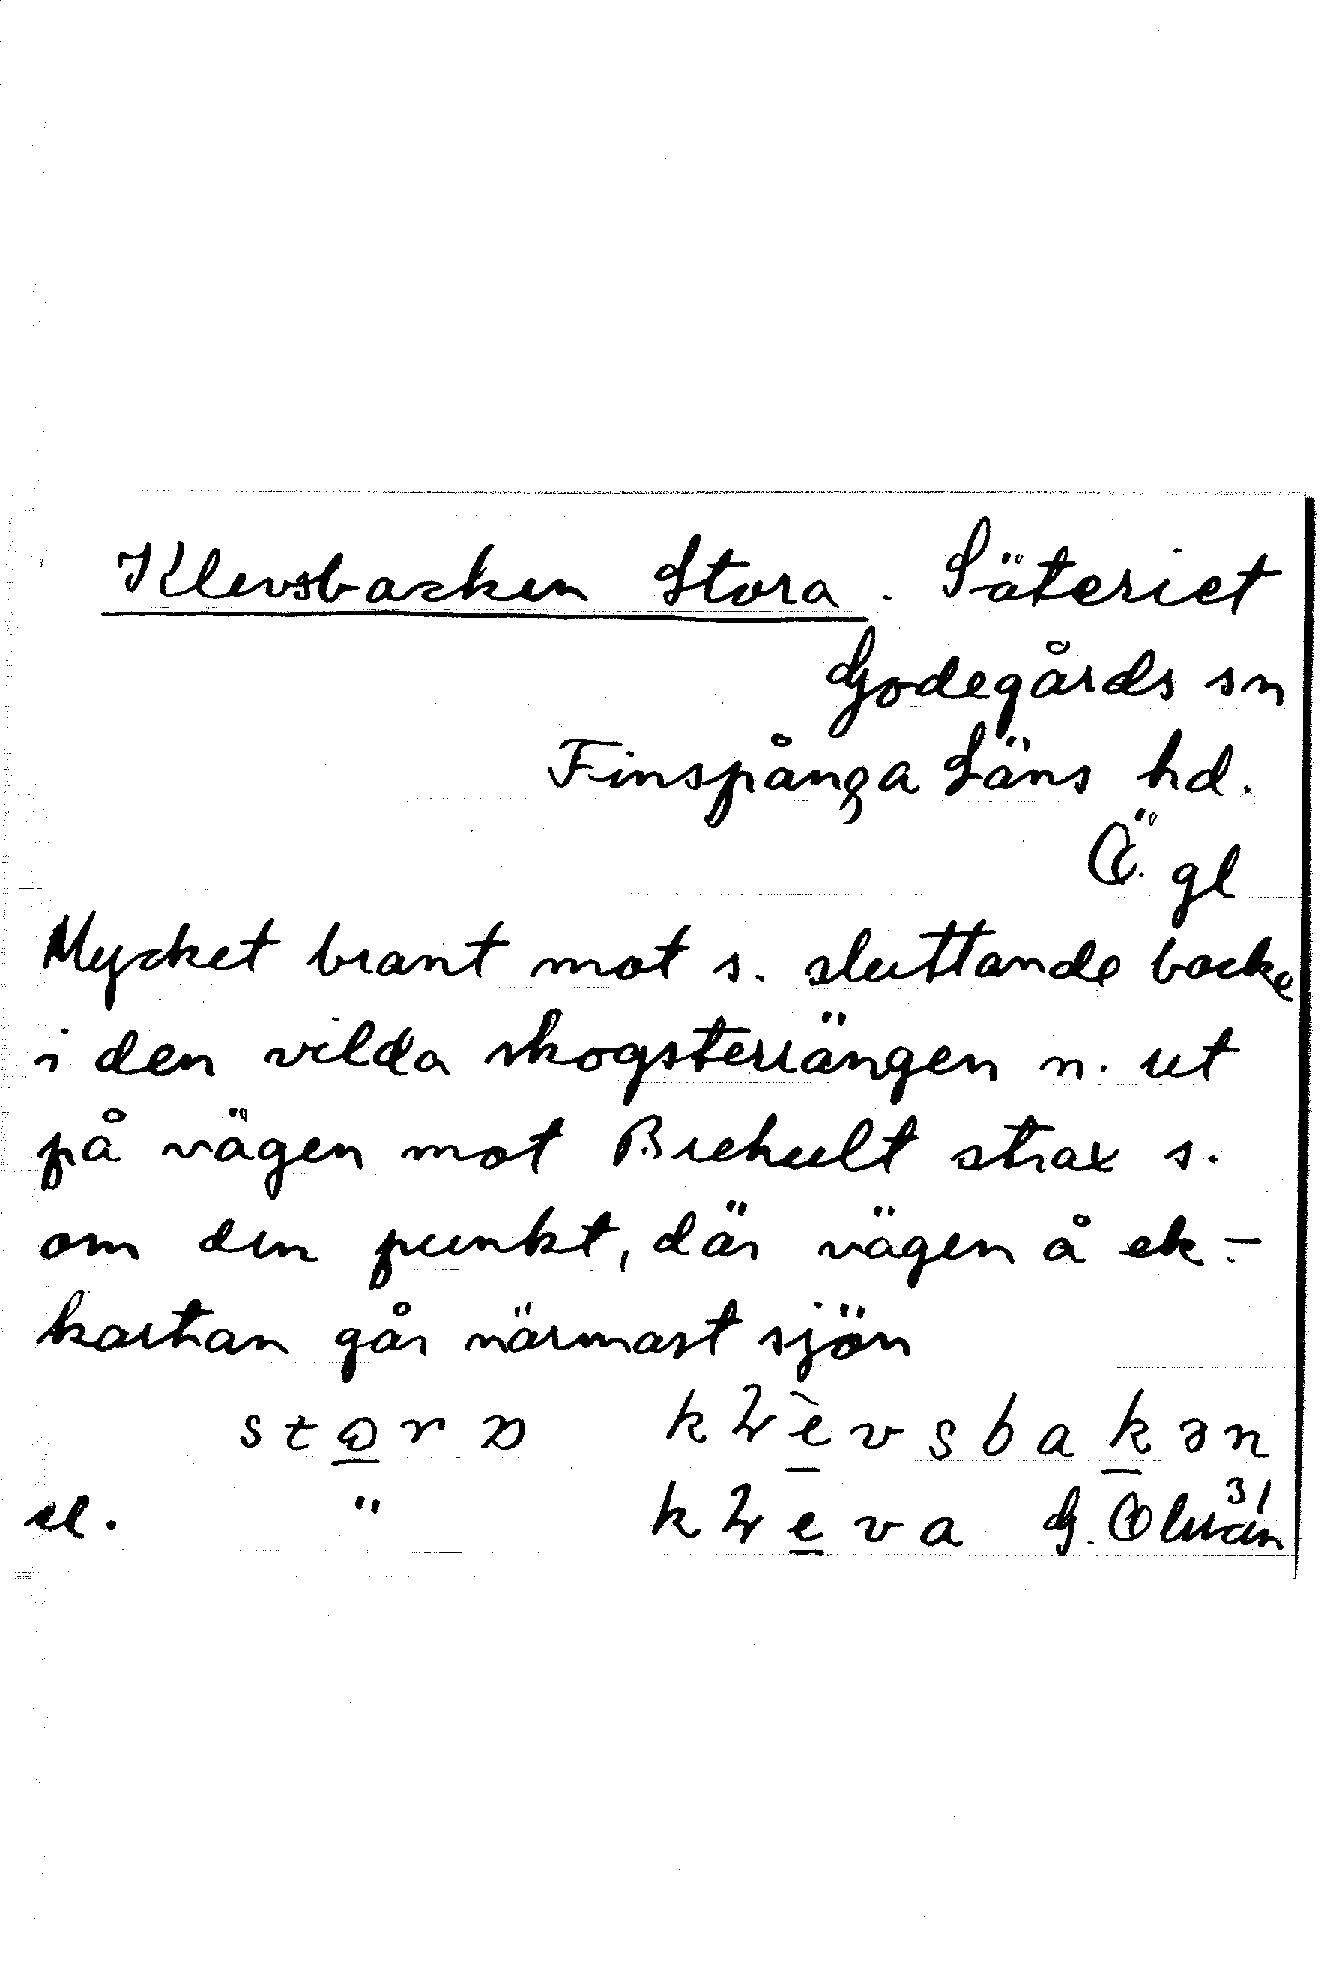 Klevsbacken Stora. Säteriet
Godegårds sn
Finspånga Läns hd.
Ö gl
Mycket brant mot s. sluttande backe
i den vilda skogsterrängen n. ut
på vägen mot Brehult strax s.
om den punkt, där vägen å ek-
kartan går närmast sjön
stora klèvsbakən
el. " kleva G. Olsván 31